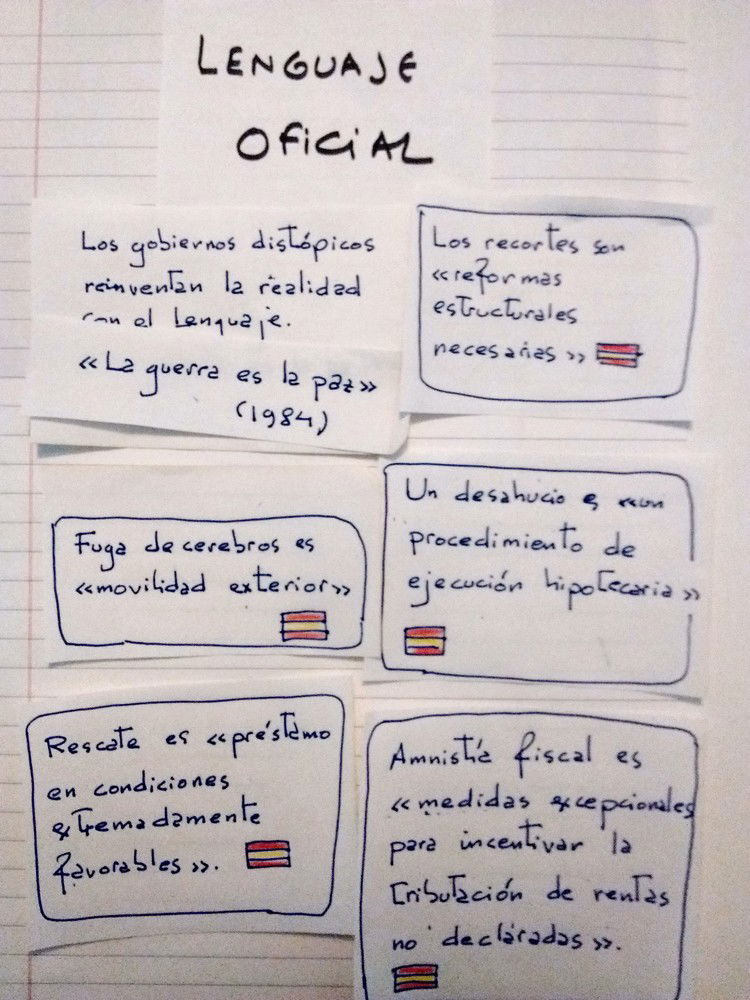 LENGUAJE
OFICIAL
Los gobiernos distópicos
reinventan la realidad
con el Lenguaje.
«La guerra es la paz»
(1984)
Los recortes son
«reformas
estructurales
necesarias»
Fuga de cerebros es
«movilidad exterior»
Un desahucio es «un
procedimiento de
ejecución hipotecaria»
Rescate es «préstamo
en condiciones
extremadamente
favorables».
Amnistía fiscal es
«medidas excepcionales
para incentivar la
tributación de rentas
no declaradas».